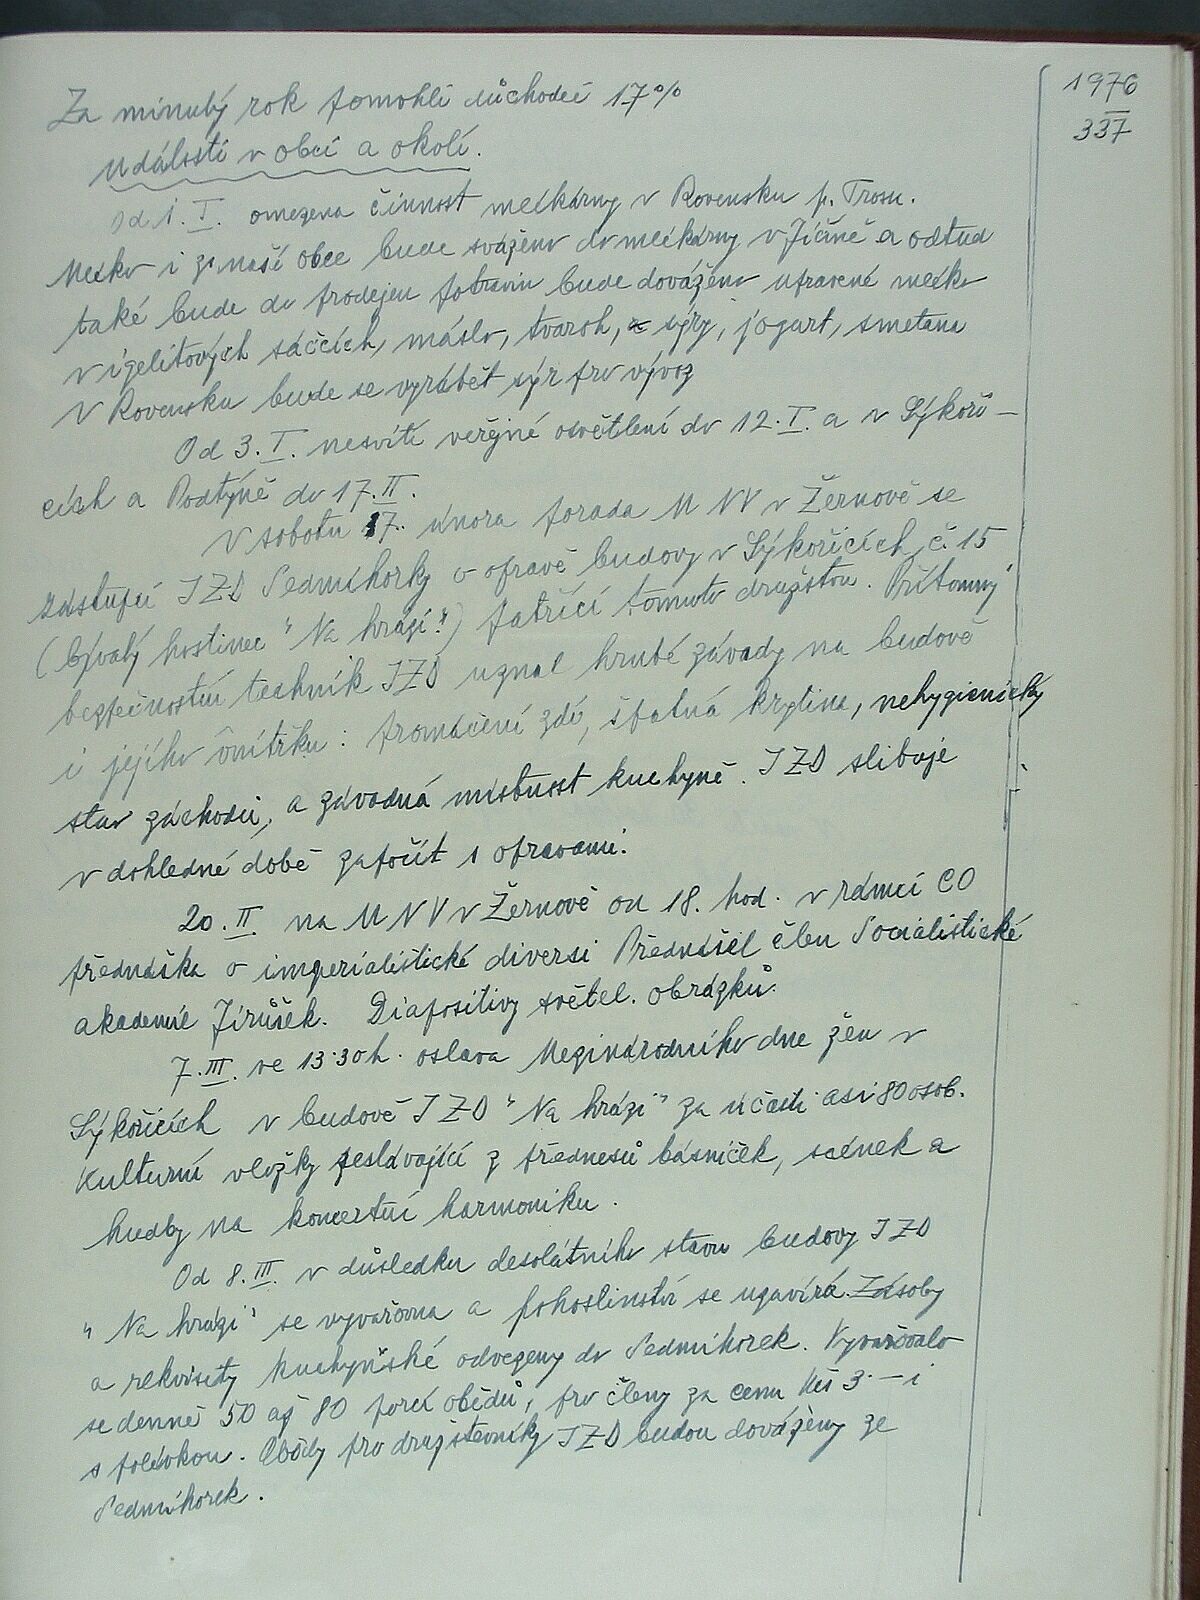 1976
337
Za minulý rok pomohli důchodci 17%
Události v obci a okolí.
Od 1. I. omezena činnost mlékárny v Rovensku p. Trosk.
Mléko i z naší obce bude sváženo do mlékárny v Jičíně a odtud
také bude do prodejen potravin bude dováženo upravené mléko
v igelitových sáčcích, máslo, tvaroh, sýry, jogurt, smetana
V Rovensku bude se vyrábět sýr pro vývoz
Od 3. I. nesvítí veřejné osvětlení do 12. I. a v Sýkoři-
cích a Podtýně do 17. II.
V sobotu 17. února porada MNV v Žernově se
zástupci JZD Sedmihorky o opravě budovy v Sýkořicích č. 15
(bývalý hostinec "Na hrázi") patřící tomuto družstvu. Přítomný
bezpečnostní technik JZD uznal hrubé závady na budově
i jejího vnitřku: promáčení zdí, špatná krytina, nehygienický
stav záchodů, a závadná místnost kuchyně. JZD slibuje
v dohledné době započít s opravami.
20. II. na MNV v Žernově od 18. hod. v rámci CO
přednáška o imperialistické diversi Přednášel člen Socialistické
akademie Jirůšek. Diapositivy světel. obrázků.
7. III. ve 13.30 h. oslava Mezinárodního dne žen v
Sýkořicích v budově JZD "Na hrázi" za účasti asi 80 osob.
Kulturní vložky sestávající z přednesů básniček, scének a
hudby na koncertní harmoniku.
Od 8. III. v důsledku desolátního stavu budovy JZD
"Na hrázi" se vyvařovna a pohostinství se uzavírá. Zásoby
a rekvisity kuchyňské odvezeny do Sedmihorek. Vyvařovalo
se denně 50 až 80 porcí obědů, pro členy za cenu Kčs 3.— i
s polévkou. Obědy pro družstevníky JZD budou dováženy ze
Sedmihorek.